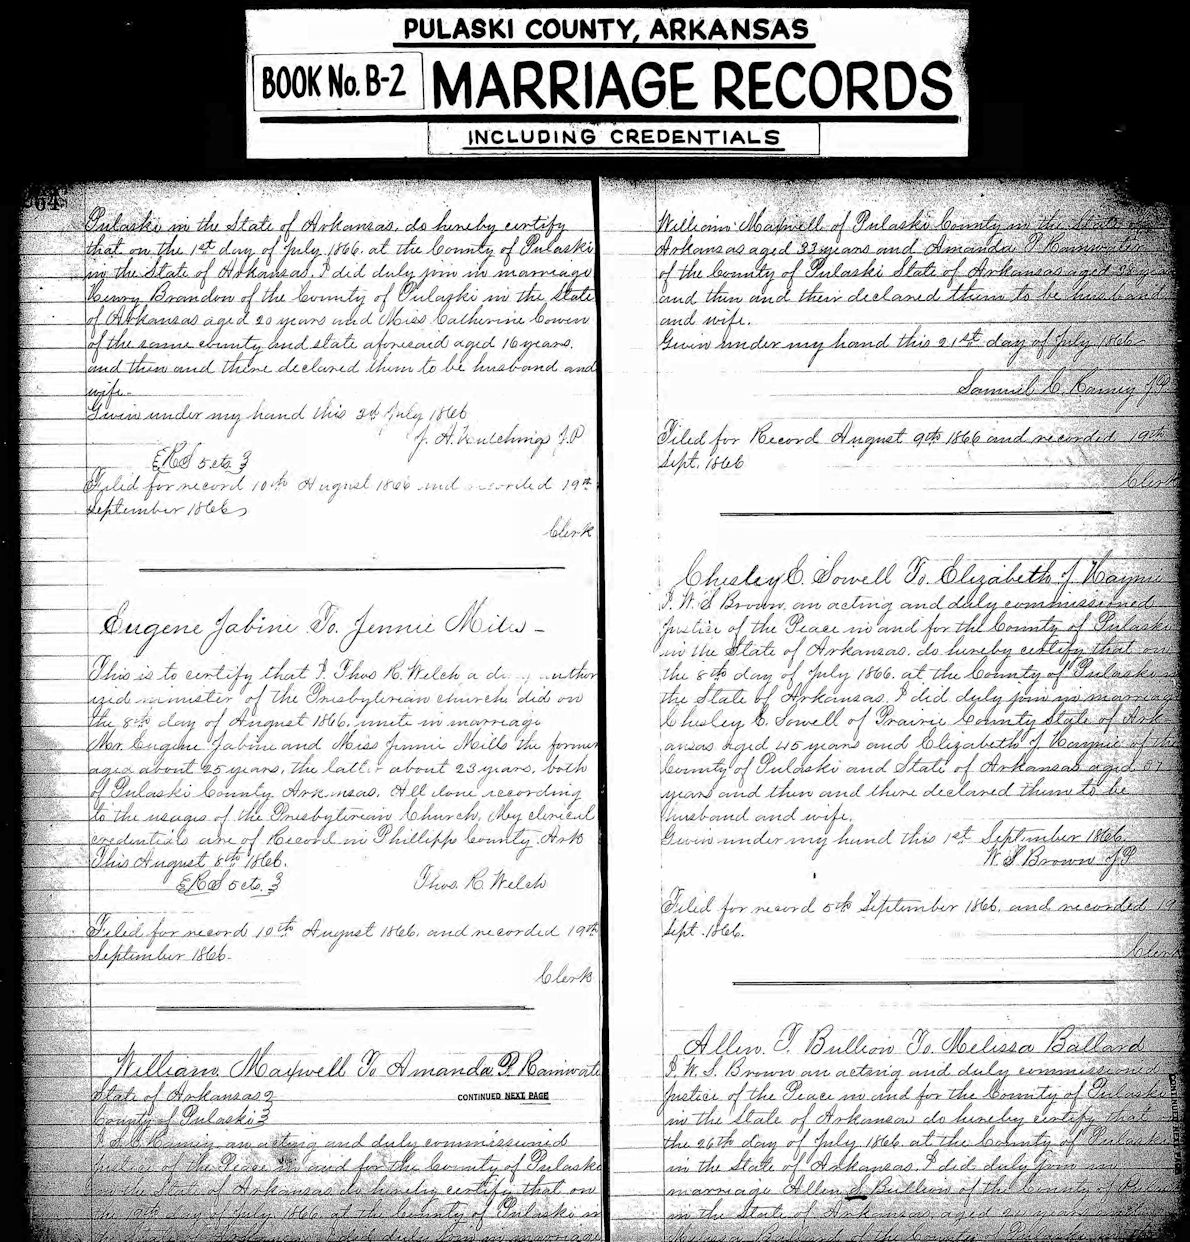 PULASKI COUNTY, ARKANSAS
BOOK No. B-2
MARRIAGE RECORDS
INCLUDING CREDENTIALS
64
Pulaski in the State of Arkansas, do hereby certify
that on the 1st day of July 1866. at the County of Pulaski
in the State of Arkansas, I did duly join in marriage
Henry Brandon of the County of Pulaski in the State
of Arkansas aged 20 years and Miss Catherine Cowen
of the same county and state aforesaid aged 16 years.
and then and there declared them to be husband and
wife.
Given under my hand this 3d July 1866
J. A. Hutchings J.P
{IRS 5 cts. }
Filed for record 10th August 1866 and recorded 19th
September 1866
Clerk
Eugene Jabine To. Jennie Mills -
This is to certify that I. Thos R. Welch a duly author
ized minister of the Presbyterian church did on
the 8th day of August 1866. unite in marriage
Mr. Eugene Jabine and Miss Jennie Mills the former
aged about 25 years, the latter about 23 years, both
of Pulaski County Arkansas. All done according
to the usages of the Presbyterian Church, my clerical
credentials are of Record in Phillipps County Ark
This August 8th 1866.
{IRS 5 cts. }
Thos. R. Welch
Filed for record 10th August 1866. and recorded 19th
September 1866.
Clerk
William Maxwell To Amanda P. Rainwate
State of Arkansas }
CONTINUED NEXT PAGE
County of Pulaski }
I S. C. Ramey an acting and duly commissioned
Justice of the Peace in and for the County of Pulaski
in the State of Arkansas do hereby certify that on
the day of July 1866. at the County of Pulaski in
the State of Arkansas I did duly join in marriage
William Maxwell of Pulaski County in the State of
Arkansas aged 33 years and Amanda P. Rainwater
of the County of Pulaski State of Arkansas aged 38 years
and then and their declared them to be husband
and wife.
Given under my hand this 21st day of July 1866
Samuel C. Ramey J.P
Filed for Record August 9th 1866 and recorded 19th
Sept. 1866
Clerk
Chesley C. Sowell To. Elizabeth J. Haynie
I. W. S Brown. an acting and duly commissioned
Justice of the Peace in and for the County of Pulaski
in the State of Arkansas, do hereby certify that on
the 8th day of July 1866. at the County of Pulaski in
the State of Arkansas, I did duly join in marriage
Chesley C. Sowell of Prairie County State of Ark
ansas aged 45 years and Elizabeth J. Haynie of the
County of Pulaski and State of Arkansas aged
years and then and there declared them to be
husband and wife.
Given under my hand this 1st September 1866
W S Brown J.P.
Filed for record 5th September 1866. and recorded 19
Sept. 1866.
Clerk
Allen. T. Bullion To. Melissa Ballard
I. W. S. Brown an acting and duly commissioned
Justice of the Peace in and for the County of Pulaski
in the State of Arkansas do hereby certify that
the 26th day of July 1866. at the County of Pulaski
in the State of Arkansas. I did duly join in
marriage Allen S Bullion of the County of
in the State of Arkansas, aged years and
Melissa Ballard of the County of Pulaski